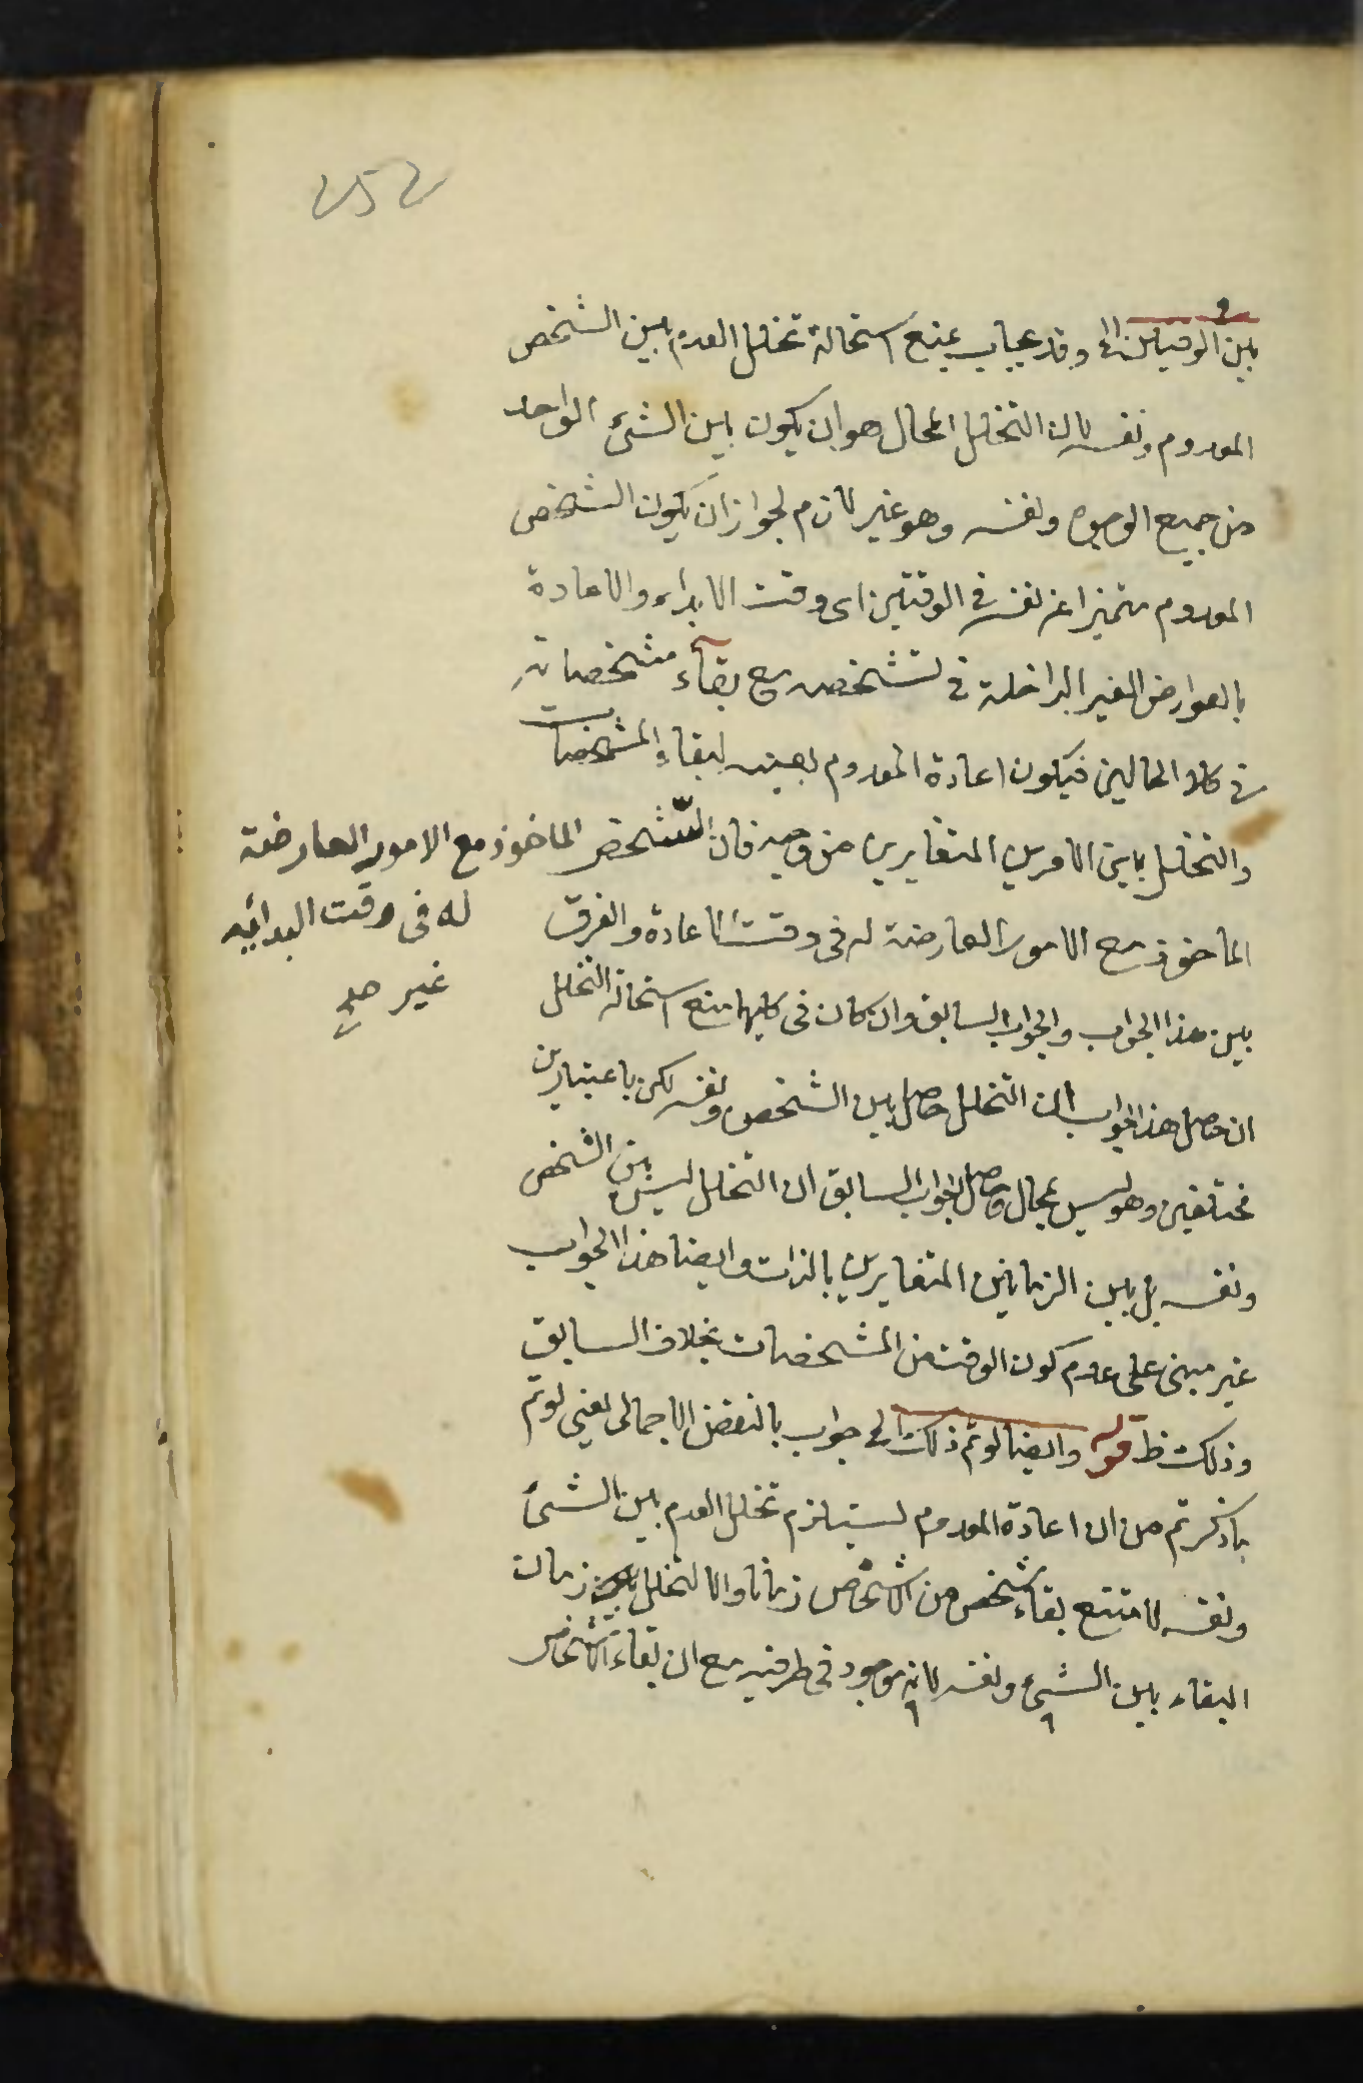 ٢٥٢
بين الوقتين الخ وقد يجاب بمنع استحالة تخلل العدم بين الشخص
المعدوم ونفسه لان التخلل المحال هو ان يكون بين الشئ الواحد
من جميع الوجوه ونفسه وهو غير لازم لجواز ان يكون الشخص
المعدوم متميزا عن نفسه في الوقتين اى وقت الابداء والاعادة
بالعوارض الغير الداخلة في تشخصه مع بقآء مشخصاته
في كلا الحالين فيكون اعادة المعدوم بعينه لبقاء المشخصات
والتخلل بين الامرين المتغايرين من وجه فان الشخص الماخوذ مع الامور العارضة
له فى وقت البدائيه
غير صح
الماخوذ مع الامور العارضة له فى وقت الاعادة والفرق
بين هذا الجواب والجواب السابق وان كان فى كليهما منع استحالة التخلل
ان حاصل هذا الجواب ان التخلل حاصل بين الشخص ونفسه لكن باعتبارين
مختلفين وهو ليس بمحال وحاصل الجواب السابق ان التخلل ليس بين الشخص
ونفسه بل بين الزمانين المتغايرين بالذات وايضا هذا الجواب
غير مبنى على عدم كون الوقت من المشخصات بخلاف السابق
وذلك ظ قوله وايضا لو تم ذلك الخ جواب بالنقض الاجمالى يعنى لو تم
ما ذكرتم من ان اعادة المعدوم يستلزم تخلل العدم بين الشئ
ونفسه لامتنع بقاء شخص من الاشخاص زمانا والا لتخلل بين زمان
البقاء بين الشئ ونفسه لانه موجود فى طرفيه مع ان بقاء الاشخاص